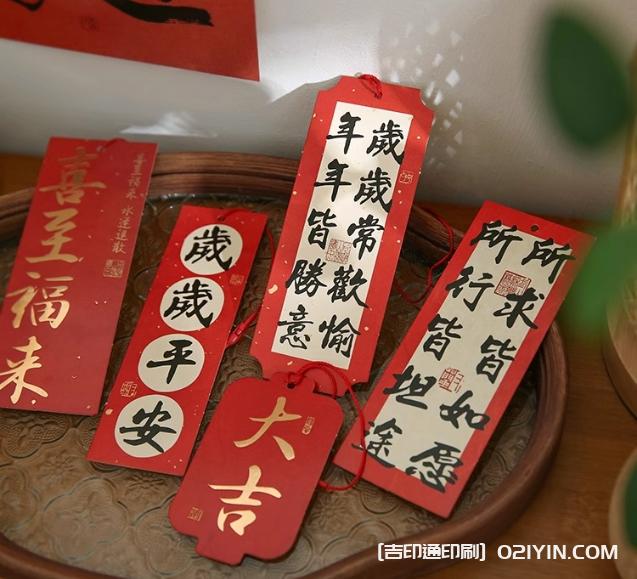 喜至福来
喜至福来 水逆退散
歲歲平安
歲歲常歡愉
年年皆勝意
大吉
所求皆如愿
所行皆坦途
[吉印通印刷] O2IYIN.COM